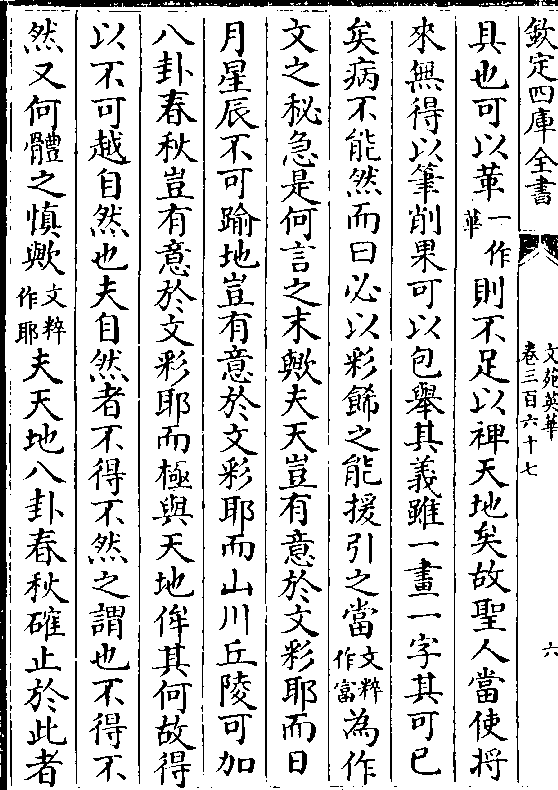 欽定四庫全書
文苑英華
卷三百六十七
六
具也可以革一作華則不足以禆天地矣故聖人當使將
來無得以筆削果可以包舉其義雖一畫一字其可已
矣病不能然而曰必以彩餙之能援引之當文粹作富為作
文之秘急是何言之末歟夫天豈有意於文彩耶而日
月星辰不可踰地豈有意於文彩耶而山川丘陵可加
八卦春秋豈有意於文彩耶而極與天地侔其何故得
以不可越自然也夫自然者不得不然之謂也不得不
然又何體之慎歟文粹作耶夫天地八卦春秋確止於此者